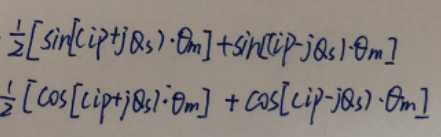 ½[sin[(ip+jQs)·θm]+sin[(ip-jQs)·θm]
½[cos[(ip+jQs)·θm] +cos[(ip-jQs)·θm]